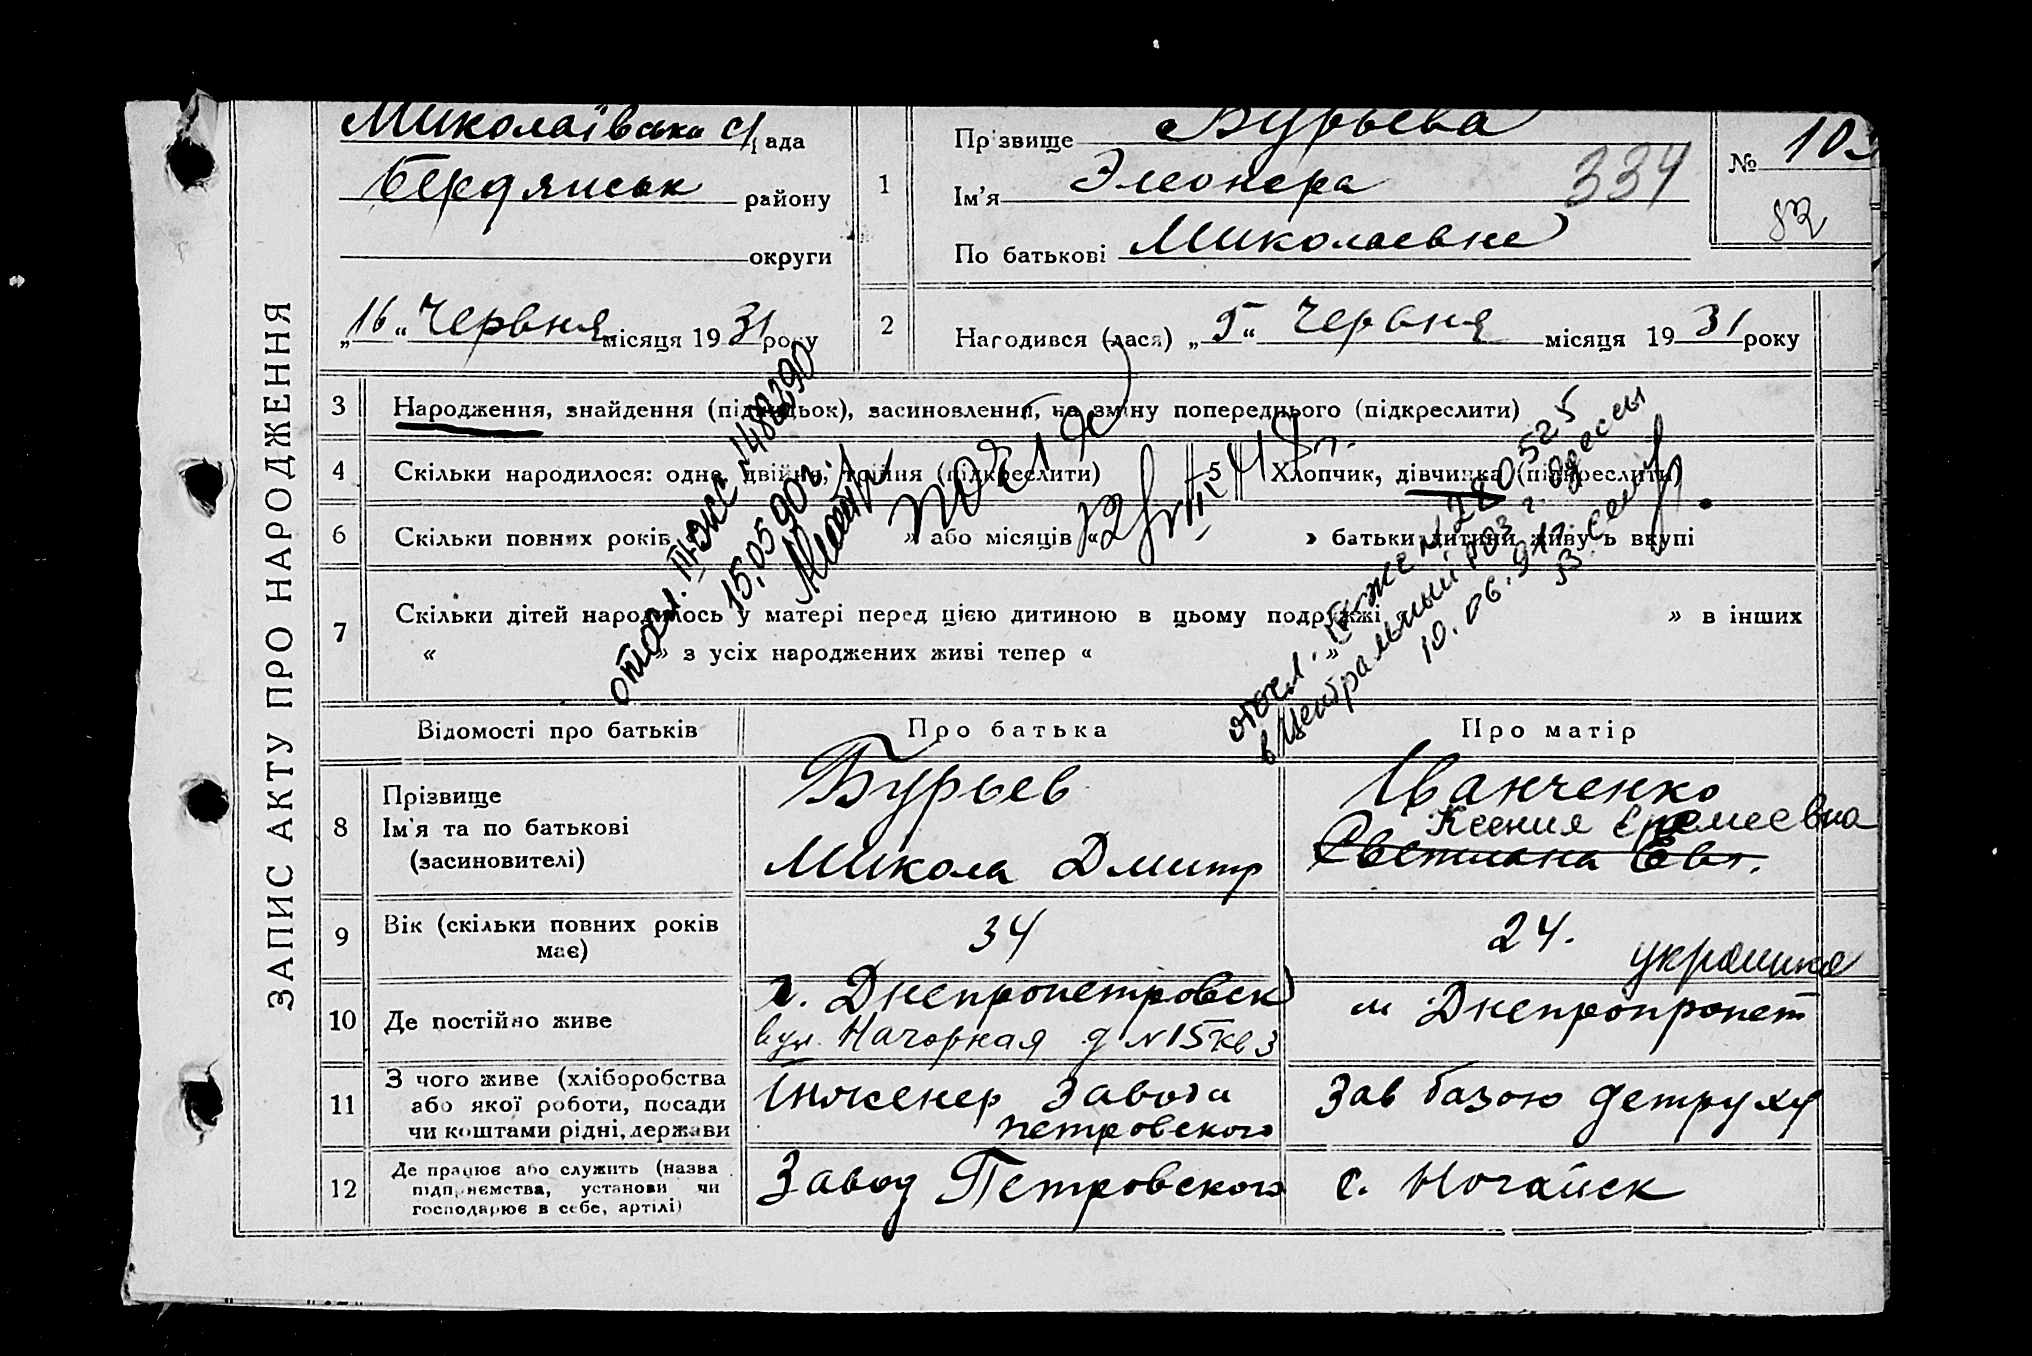 ЗАПИС АКТУ ПРО НАРОДЖЕННЯ
Миколаївська с/рада
Бердянськ району
округи
„16“ Червня місяця 1931 року
1
Прізвище Бурьева
Ім’я Элеонора 334
По батькові Миколаевна
№ 10
82
2
Народився (лася) „5“ Червня місяця 1931 року
3 Народження, знайдення (підкидьок), засиновлення, на зміну попереднього (підкреслити)
4 Скільки народилося: одна, двійня, трійня (підкреслити)
5 Хлопчик, дівчинка (підкреслити)
6 Скільки повних років « » або місяців « » батьки дитини живуть вкупі
7 Скільки дітей народилось у матері перед цією дитиною в цьому подружжі « » в інших
« » з усіх народжених живі тепер «
III-ЖС №482290
15.05.90г.
IV-ЖС № 280525
в Центральный г. Одессы
10.06.91г.
Відомості про батьків Про батька Про матір
8 Прізвище
Ім’я та по батькові
(засиновителі)
Бурьев
Микола Дмитр
Іванченко
Ксения Еремеевна
Светлана Евг.
9 Вік (скільки повних років
має)
34
24.
украинка
10 Де постійно живе
г. Днепропетровск
вул. Нагорная д №15 кв 3
м Днепропропет
11 З чого живе (хліборобства
або якої роботи, посади
чи коштами рідні, держави
Інженер завода
Петровского
Зав базою детруху
12 Де працює або служить (назва
підприємства, установи чи
господарює в себе, артілі)
Завод Петровского
с. Ногайск